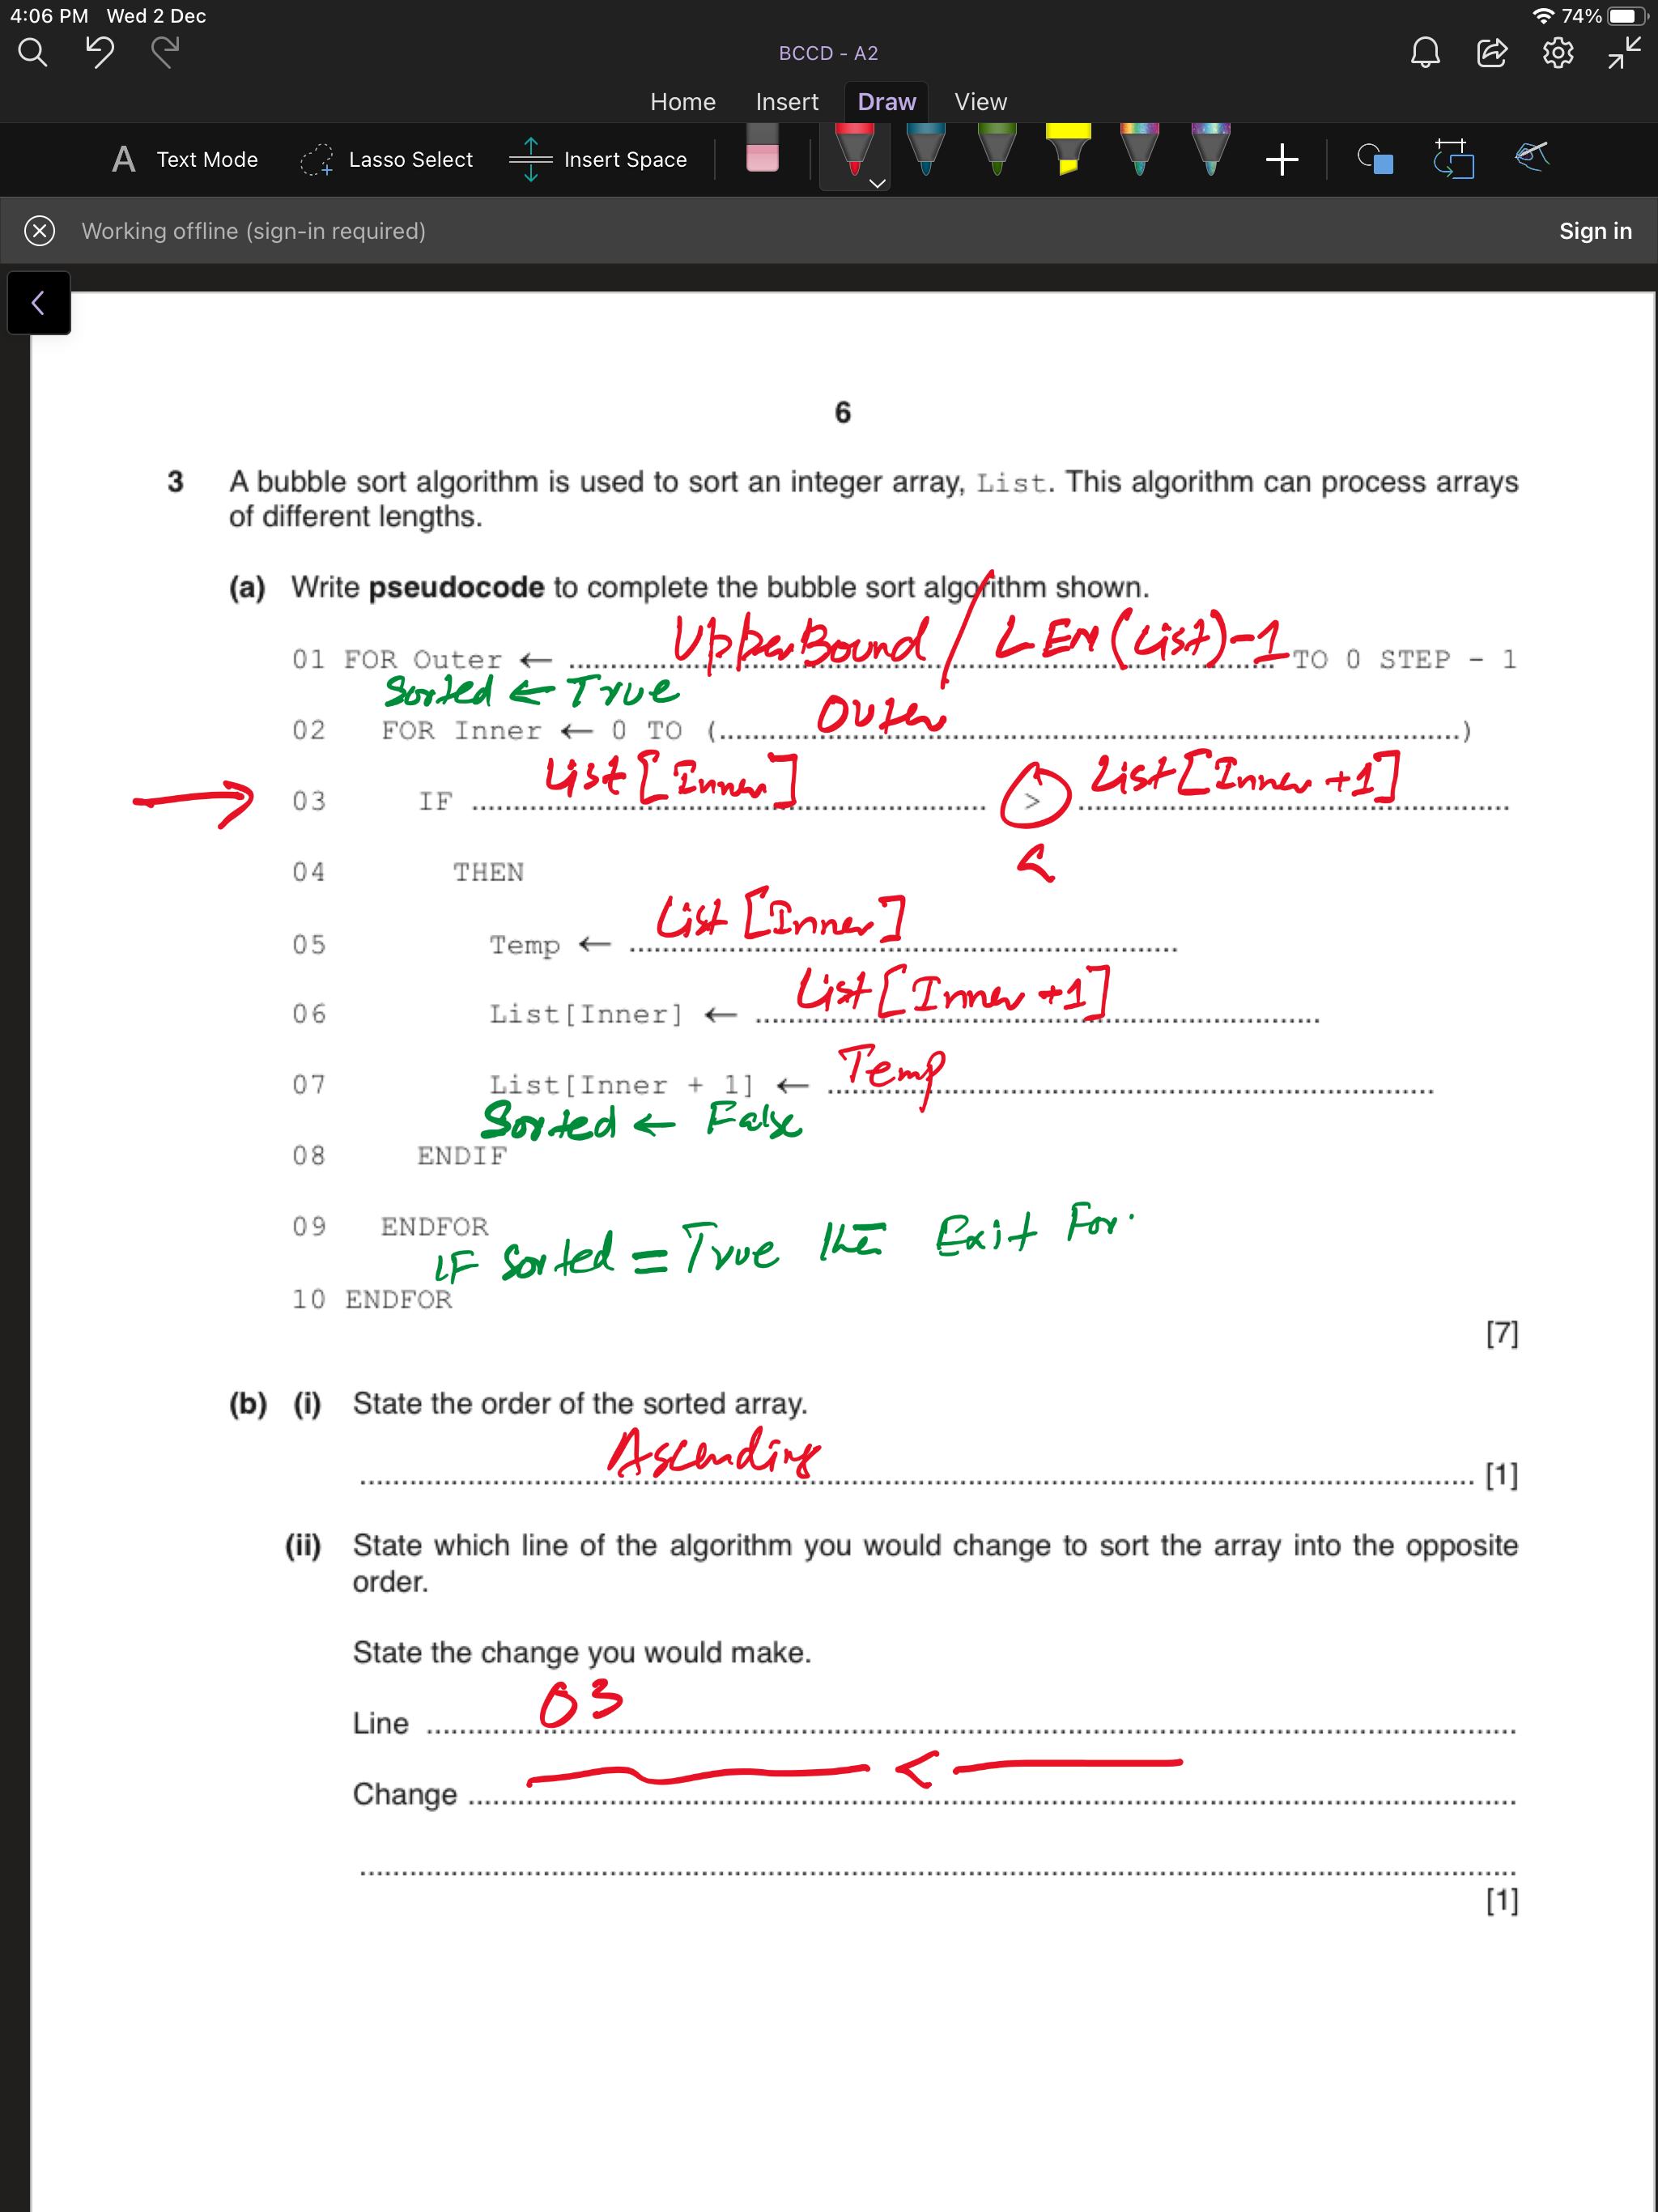 4:06 PM Wed 2 Dec
74%
BCCD - A2
Home Insert Draw View
A Text Mode Lasso Select Insert Space
Working offline (sign-in required) Sign in
6
3 A bubble sort algorithm is used to sort an integer array, List. This algorithm can process arrays
of different lengths.
(a) Write pseudocode to complete the bubble sort algorithm shown.
01 FOR Outer ← UpperBound / LEN(List)-1 TO 0 STEP - 1
Sorted ← True
02 FOR Inner ← 0 TO (Outer)
03 IF List[Inner] > List[Inner+1]
<
04 THEN
05 Temp ← List[Inner]
06 List[Inner] ← List[Inner+1]
07 List[Inner + 1] ← Temp
Sorted ← False
08 ENDIF
09 ENDFOR
IF Sorted = True the Exit For.
10 ENDFOR
[7]
(b) (i) State the order of the sorted array.
Ascending [1]
(ii) State which line of the algorithm you would change to sort the array into the opposite
order.
State the change you would make.
Line 03
Change <
[1]